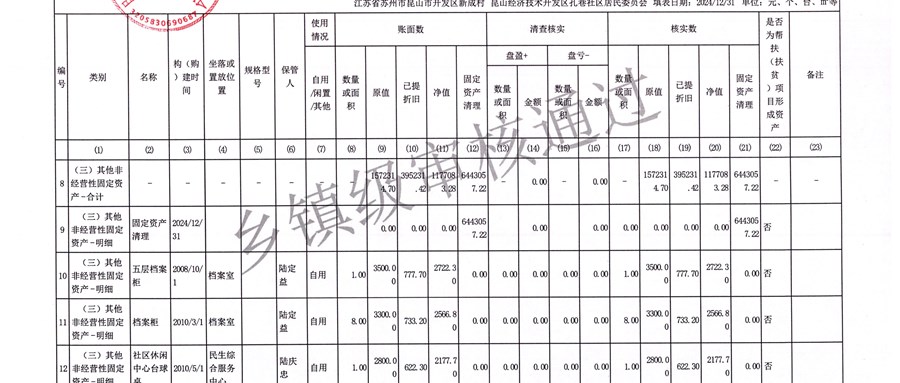 江苏省苏州市昆山市开发区新成村 昆山经济技术开发区孔巷社区居民委员会 填表日期: 2024/12/31 单位: 元、个、台、㎡等
3205830690687
编号 类别 名称 构（购）建时间 坐落或置放位置 规格型号 保管人 使用情况 账面数 清查核实 核实数 是否为帮扶（扶贫）项目形成资产 备注
盘盈+ 盘亏-
自用/闲置/其他 数量或面积 原值 已提折旧 净值 固定资产清理 数量或面积 金额 数量或面积 金额 数量或面积 原值 已提折旧 净值 固定资产清理
(1) (2) (3) (4) (5) (6) (7) (8) (9) (10) (11) (12) (13) (14) (15) (16) (17) (18) (19) (20) (21) (22) (23)
8 （三）其他非经营性固定资产-合计 - - - - - - - 1572314.70 395231.42 1177083.28 6443057.22 - 0.00 - 0.00 - 1572314.70 395231.42 1177083.28 6443057.22 - -
9 （三）其他非经营性固定资产-明细 固定资产清理 2024/12/31 0.00 0.00 0.00 6443057.22 0.00 0.00 0.00 6443057.22 否
10 （三）其他非经营性固定资产-明细 五层档案柜 2008/10/1 档案室 陆定益 自用 1.00 3500.00 777.70 2722.30 0.00 0.00 0.00 0.00 0.00 1.00 3500.00 777.70 2722.30 0.00 否
11 （三）其他非经营性固定资产-明细 档案柜 2010/3/1 档案室 陆定益 自用 8.00 3300.00 733.20 2566.80 0.00 0.00 0.00 0.00 0.00 8.00 3300.00 733.20 2566.80 0.00 否
12 （三）其他非经营性固定资产-明细 社区休闲中心台球桌 2010/5/1 民生综合服务中心 陆庆忠 自用 1.00 2800.00 622.30 2177.70 0.00 0.00 0.00 0.00 0.00 1.00 2800.00 622.30 2177.70 0.00 否
乡镇级审核通过